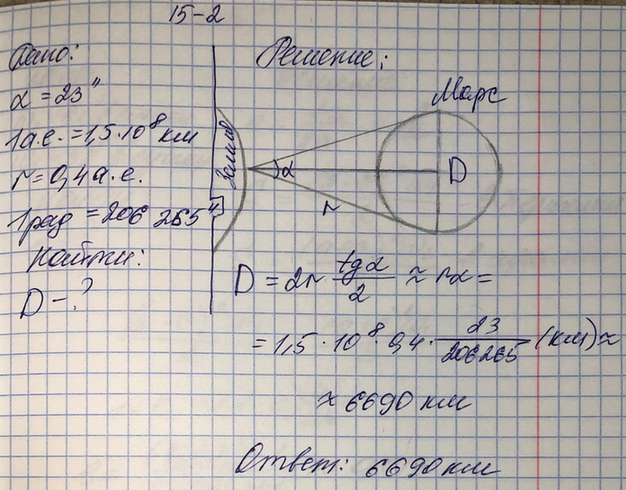 15-2
Дано:
α = 23"
1 а.е. = 1,5·10⁸ км
r = 0,4 а.е.
1 рад = 206 265"
Найти:
D - ?
Решение:
Марс
Земля
α
D
r
D = 2r tgα/2 ≈ rα =
= 1,5 · 10⁸ · 0,4 · 23/206265 (км) ≈
≈ 6690 км
Ответ: 6690 км